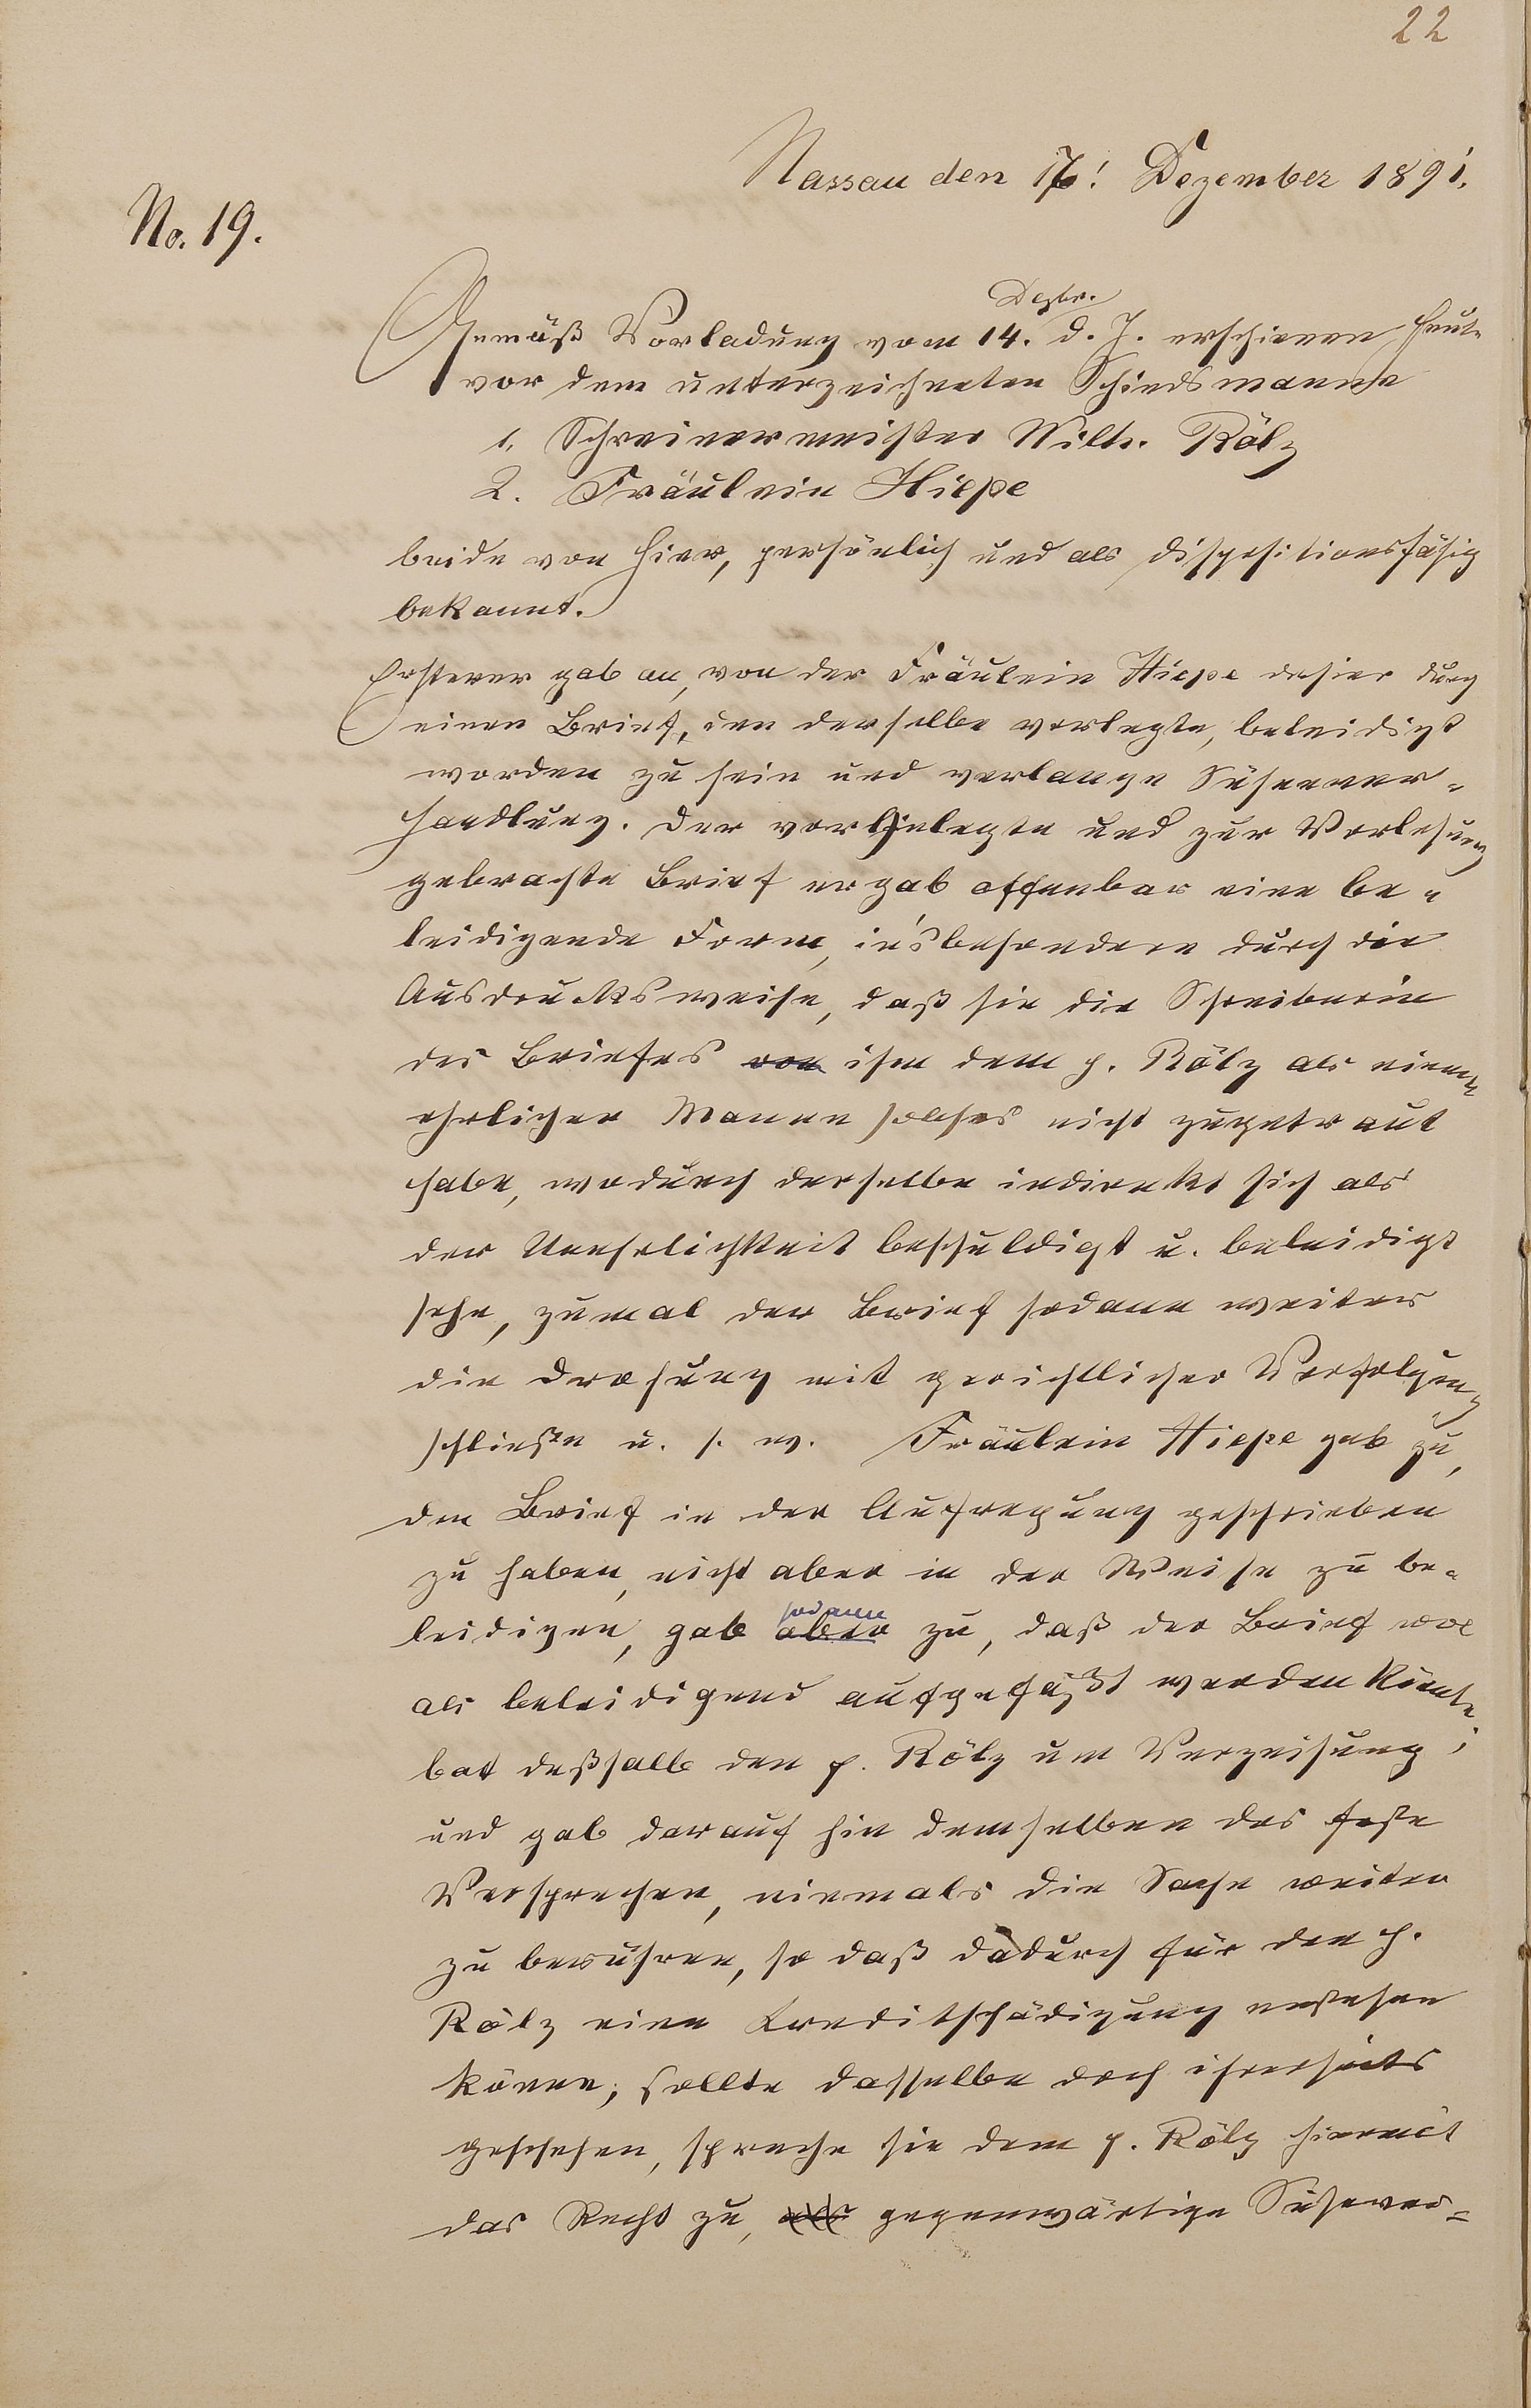 22
Nassau den 17! Dezember 1891.
No. 19.
Dezbr.
Gemäß Vorladung vom 14. d. J. erschienen heute
vor dem unterzeichneten Schiedsmanne
1. Schreinermeister Wilh. Rölz
2. Fräulein Hiepe
beide von hier, persönlich und als dispositionsfähig
bekannt.
Ersterer gab an, von der Fräulein Hiepe dahier durch
einen Brief, den derselbe vorlegte, beleidigt
worden zu sein und verlange Sühnever-
handlung. Der vorgelegte und zur Vorlesung
gebrachte Brief ergab offenbar eine be-
leidigende Form, in'sbesondere durch die
Ausdruksweise, daß sie die Schreiberin
des Briefes von ihm dem p. Rölz als einem
ehrlichen Manne solches nicht zugetraut
habe, wodurch derselbe indirekt sich als
der Unehrlichkeit beschuldigt u. beleidigt
sehe, zumal der Brief sodann weiter
die Drohung mit gerichtlicher Verfolgung
schließe u. s. w. Fräulein Hiepe gab zu,
den Brief in der Aufregung geschrieben
zu haben, nicht aber in der Weise zu be-
sodann
leidigen, gab aber zu, daß der Brief wol
als beleidigend aufgefaßt werden könnte,
bat deßhalb den p. Rölz um Verzeihung;
und gab darauf hin demselben das feste
Versprechen, niemals die Sache weiter
zu berühren, so daß dadurch für den p.
Rölz eine Kreditschädigung entstehen
könne; sollte dasselbe doch ihrerseits
geschehen, spreche sie dem p. Rölz hiermit
das Recht zu, gegenwärtige Sühnever-